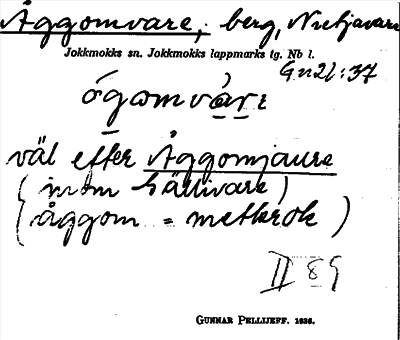 Åggomvare, berg, Nietjavare
Jokkmokks sn. Jokkmokks lappmarks tg. Nb l.
Gn21:37
ógomvàrε
väl efter Åggomjaure
(inom Gällivare)
(åggom = metkrok)
II 89
GUNNAR PELLIJEFF. 1936.